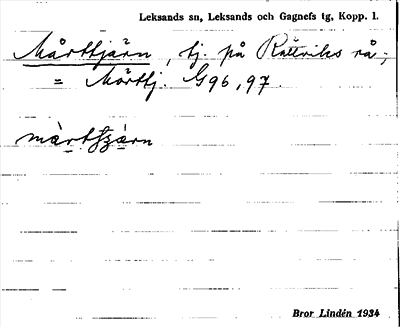 Leksands sn, Leksands och Gagnefs tg, Kopp. l.
Mårttjärn, tj. på Rättviks rå;
= Mörttj. G96,97.
Bror Lindén 1934